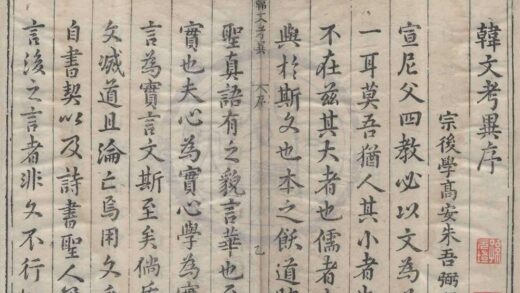 韓文考異序
宗後學高安朱吾弼
宣尼父四教必以文為
一耳莫吾猶人其小者
不在茲其大者也儒者
與於斯文也本之飫道
聖真語有之貌言華也
實也夫心為實心學為實
言為實言文斯至矣倘
文滅道且淪亡烏用文
自書契以及詩書聖人
言後之言者非文不行
韓文考異
序